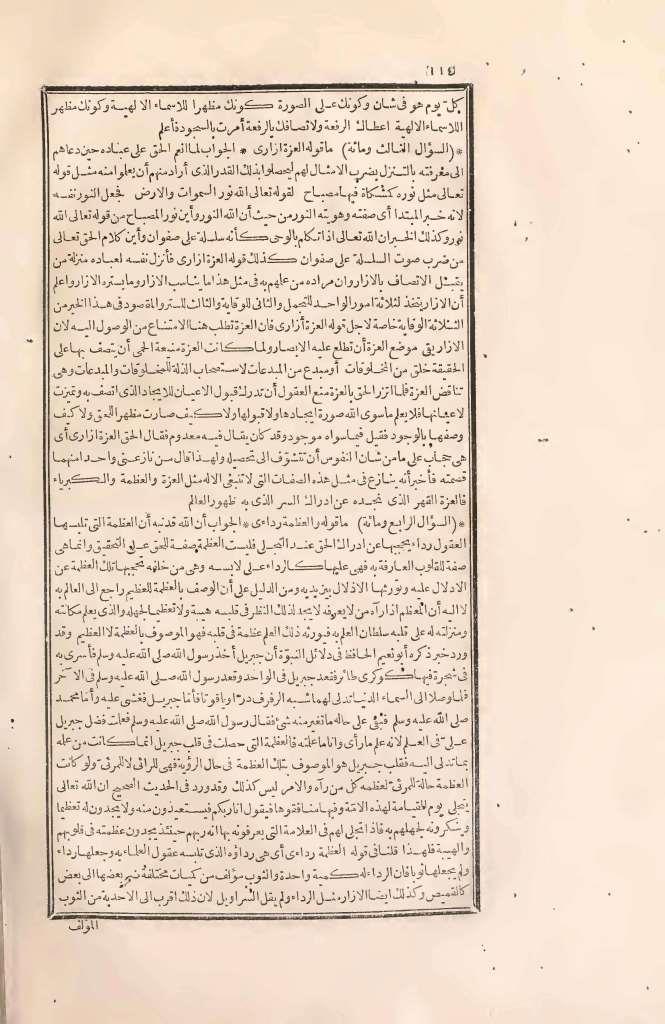 ١١٤
كل يوم هو فى شان وكونك على الصورة كونك مظهرا للاسماء الالهية وكونك مظهر
اللاسماء الالهية اعطاك الرفعة ولاتصافك بالرفعة أمرت بالسجود فأعلم
* (السؤال الثالث ومائة) ماقوله العزة ازارى * الجواب لما انعم الحق على عباده حين دعاهم
الى معرفته بالتنزل بضرب الامثال لهم ليحصلوا بذلك القدر الذى أراد منهم أن يعلموا منه مثل قوله
تعالى مثل نوره كمشكاة فيها مصباح لقوله تعالى الله نور السموات والارض فجعل النور نفسه
لانه خبر المبتدا أى صفته وهويته النور من حيث أن الله النور وأين نور المصباح من قوله تعالى الله
نور وكذلك الخبر ان الله تعالى اذا تكلم بالوحى كأنه سلسلة على صفوان وأين كلام الحق تعالى
من ضرب صوت السلسلة على صفوان كذلك قوله العزة ازارى فأنزل نفسه لعباده منزلة من
يقبل الاتصاف بالازار وان مراده من علمهم به فى مثل هذا ما يناسب الازار وما يستره الازار واعلم
أن الازار يتخذ لثلاثة امور الواحد للتجمل والثانى للوقاية والثالث للستر والمقصود فى هذا الخبر من
الثلاثة الوقاية خاصة لاجل قوله العزة أزارى فان العزة تطلب هنا الامتناع من الوصول اليه لان
الازار يقى موضع العزة أن تطلع عليه الابصار ولما كانت العزة منيعة الحمى أن يتصف بها على
الحقيقة خلق من المخلوقات أو مبدع من المبدعات لاستصحاب الذلة للمخلوقات والمبدعات وهى
تناقض العزة فلما اتزر الحق بالعزة منع العقول أن تدرك قبول الاعيان للايجاد الذى اتصف به وتميزت
لاعيانها فلا يعلم ماسوى الله صورة ايجادها ولا قبولها ولا كيف صارت مظهر اللحق ولا كيف
وصفها بالوجود فقيل فيما سواه موجود وقد كان يقال فيه معدوم فقال الحق العزة ازارى أى
هى حجاب على ما من شان النفوس أن تتشوف الى تحصيله ولهذا قال من نازعنى واحدا منهما
قصمته فأخبر أنه ينازع فى مثل هذه الصفات التى لا تنبغى الا له مثل العزة والعظمة والكبرياء
فالعزة القهر الذى نجده عن ادراك السر الذى به ظهور العالم
* (السؤال الرابع ومائة) ماقوله والعظمة رداءى * الجواب أن الله قد نبه أن العظمة التى تلبسها
العقول رداء يحجبها عن ادراك الحق عند التجلى فليست العظمة صفة للحق على التحقيق وانما هى
صفة للقلوب العارفة به فهى عليها كالرداء على لابسه وهى من خلفه تحجبها تلك العظمة عن
الادلال عليه وتورثها الاذلال بين يديه ومن الدليل على أن الوصف بالعظمة للعظيم راجع الى العالم به
لا اليه أن المعظم اذا رآه من لا يعرفه لا يجد لذلك النظر فى قلبه هيبة ولا تعظيما لجهله والذى يعلم مكانته
ومنزلته له على قلبه سلطان العلم به فيورثه ذلك العلم عظمة فى قلبه فهو الموصوف بالعظمة لا العظيم وقد
ورد خبر ذكره أبو نعيم الحافظ فى دلائل النبوة أن جبريل أخذ رسول الله صلى الله عليه وسلم فأسرى به
فى شجرة فيها كوكرى طائر فقعد جبريل فى الواحد وقعد رسول الله صلى الله عليه وسلم فى الآخر
فلما وصلا الى السماء الدنيا تدلى لهما شبه الرفرف درا وياقوتا فأما جبريل فغشى عليه وأما محمد
صلى الله عليه وسلم فبقى على حاله ما تغير منه شئ فقال رسول الله صلى الله عليه وسلم فعلمت فضل جبريل
على فى العلم لانه علم ما رأى وانا ما علمته فالعظمة التى حصلت فى قلب جبريل انما كانت من علمه
بما تدلى اليه فقلب جبريل هو الموصوف بتلك العظمة فى حال الرؤية فهى للرائى لا للمرئى ولو كانت
العظمة حالة للمرئى لعظمه كل من رآه والامر ليس كذلك وقد ورد فى الحديث الصحيح ان الله تعالى
يتجلى يوم القيامة لهذه الامة وفيها منافقوها فيقول انا ربكم فيستعيذون منه ولا يجدون له تعظيما
وينكرونه لجهلهم به فاذا تجلى لهم فى العلامة التى يعرفونه بها انه ربهم حينئذ يجدون عظمته فى قلوبهم
والهيبة فلهذا قلنا فى قوله العظمة رداءى أى هى رداؤه الذى تلبسه عقول العلماء به وجعلها رداء
ولم يجعلها ثوبا فان الرداء له كمية واحدة والثوب مؤلف من كميات مختلفة ضم بعضها الى بعض
كالقميص وكذلك ايضا الازار مثل الرداء ولم يقل السراويل لان ذلك اقرب الى الاحدية من الثوب
المؤلف